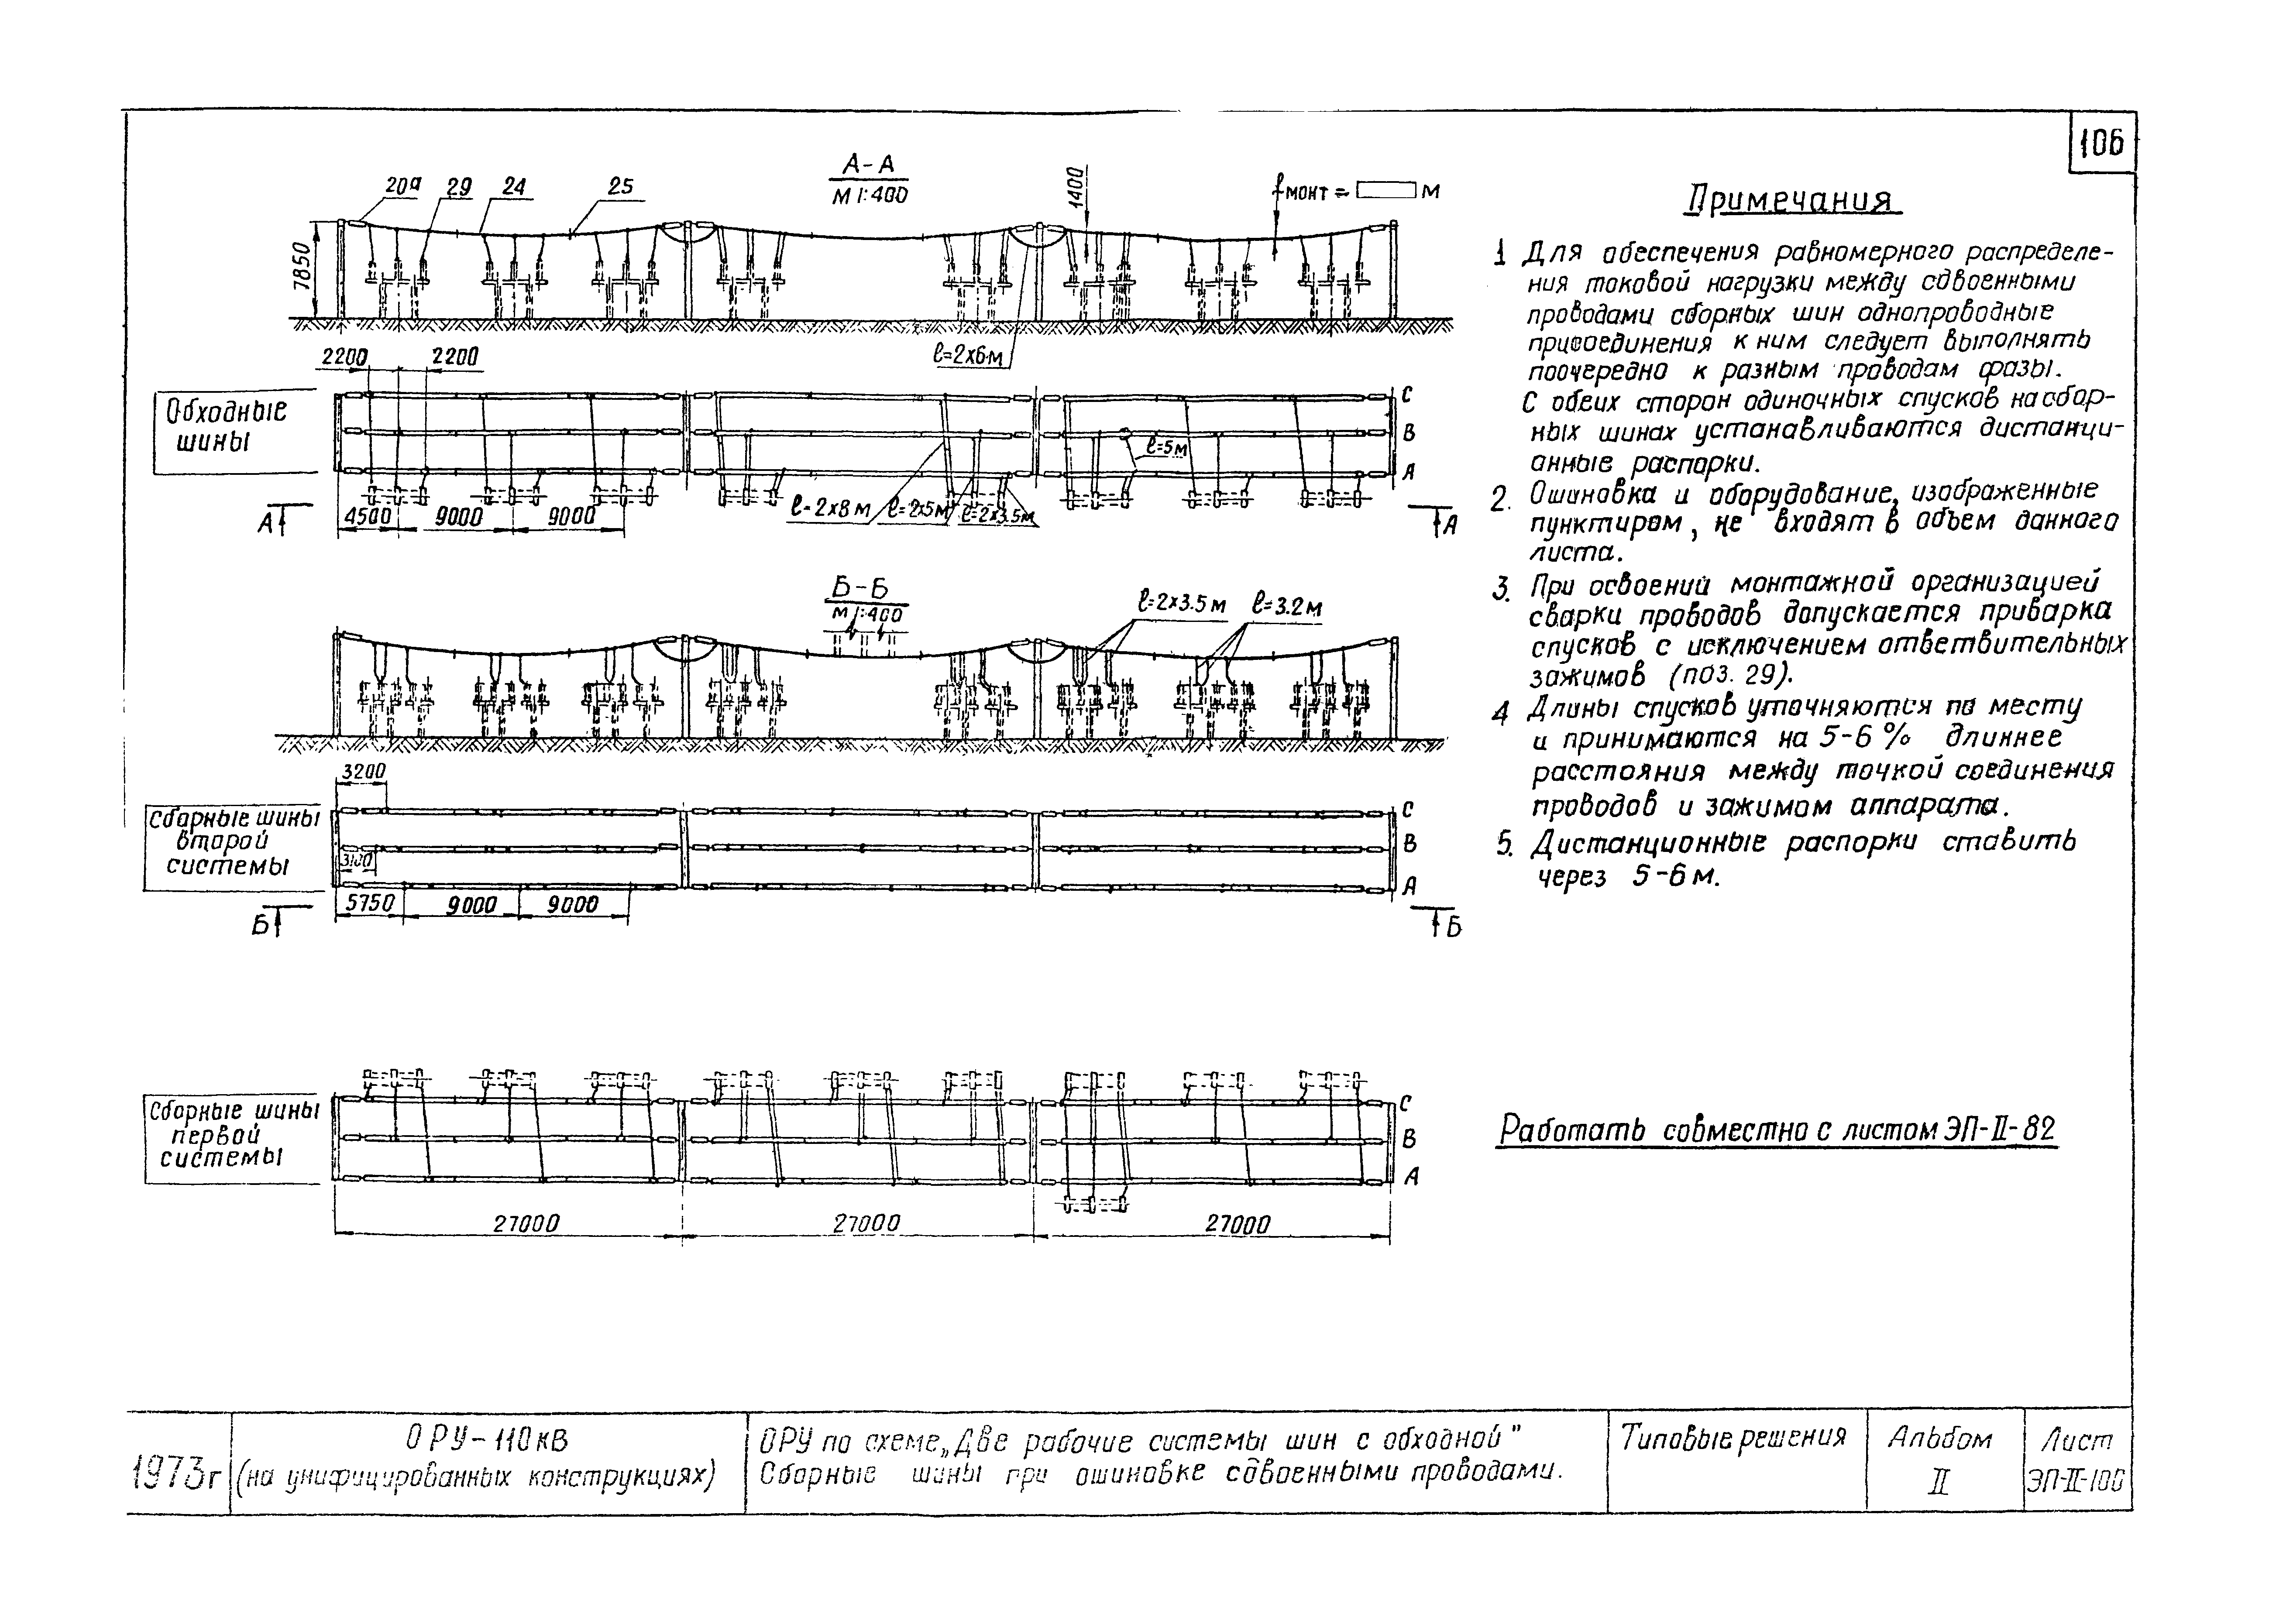 106
А-А
М 1:400
20а
29
24
25
1400
fмонт = м
7850
ℓ=2х6м
2200
2200
Обходные
шины
С
В
А
ℓ=5м
ℓ=2х8м
ℓ=2х5м
ℓ=2х3.5м
А
4500
9000
9000
А
Б-Б
М 1:400
ℓ=2х3.5м
ℓ=3.2м
3200
Сборные шины
второй
системы
3100
С
В
А
5750
9000
9000
Б
Б
Сборные шины
первой
системы
С
В
А
27000
27000
27000
Примечания
1 Для обеспечения равномерного распределе-
ния токовой нагрузки между сдвоенными
проводами сборных шин однопроводные
присоединения к ним следует выполнять
поочередно к разным проводам фазы.
С обеих сторон одиночных спусков на сбор-
ных шинах устанавливаются дистанци-
анные распорки.
2. Ошиновка и оборудование, изображенные
пунктиром, не входят в объем данного
листа.
3. При освоений монтажной организацией
сварки проводов допускается приварка
спусков с исключением ответвительных
зажимов (поз. 29).
4 Длины спусков уточняются по месту
и принимаются на 5-6 % длиннее
расстояния между точкой соединения
проводов и зажимом аппарата.
5. Дистанционные распорки ставить
через 5-6м.
Работать совместно с листом ЭП-II-82
1973г
ОРУ-110кВ
(на унифицированных конструкциях)
ОРУ по схеме „Две рабочие системы шин с обходной"
Сборные шины при ошиновке сдвоенными проводами.
Типовые решения
Альбом
II
Лист
ЭП-II-100